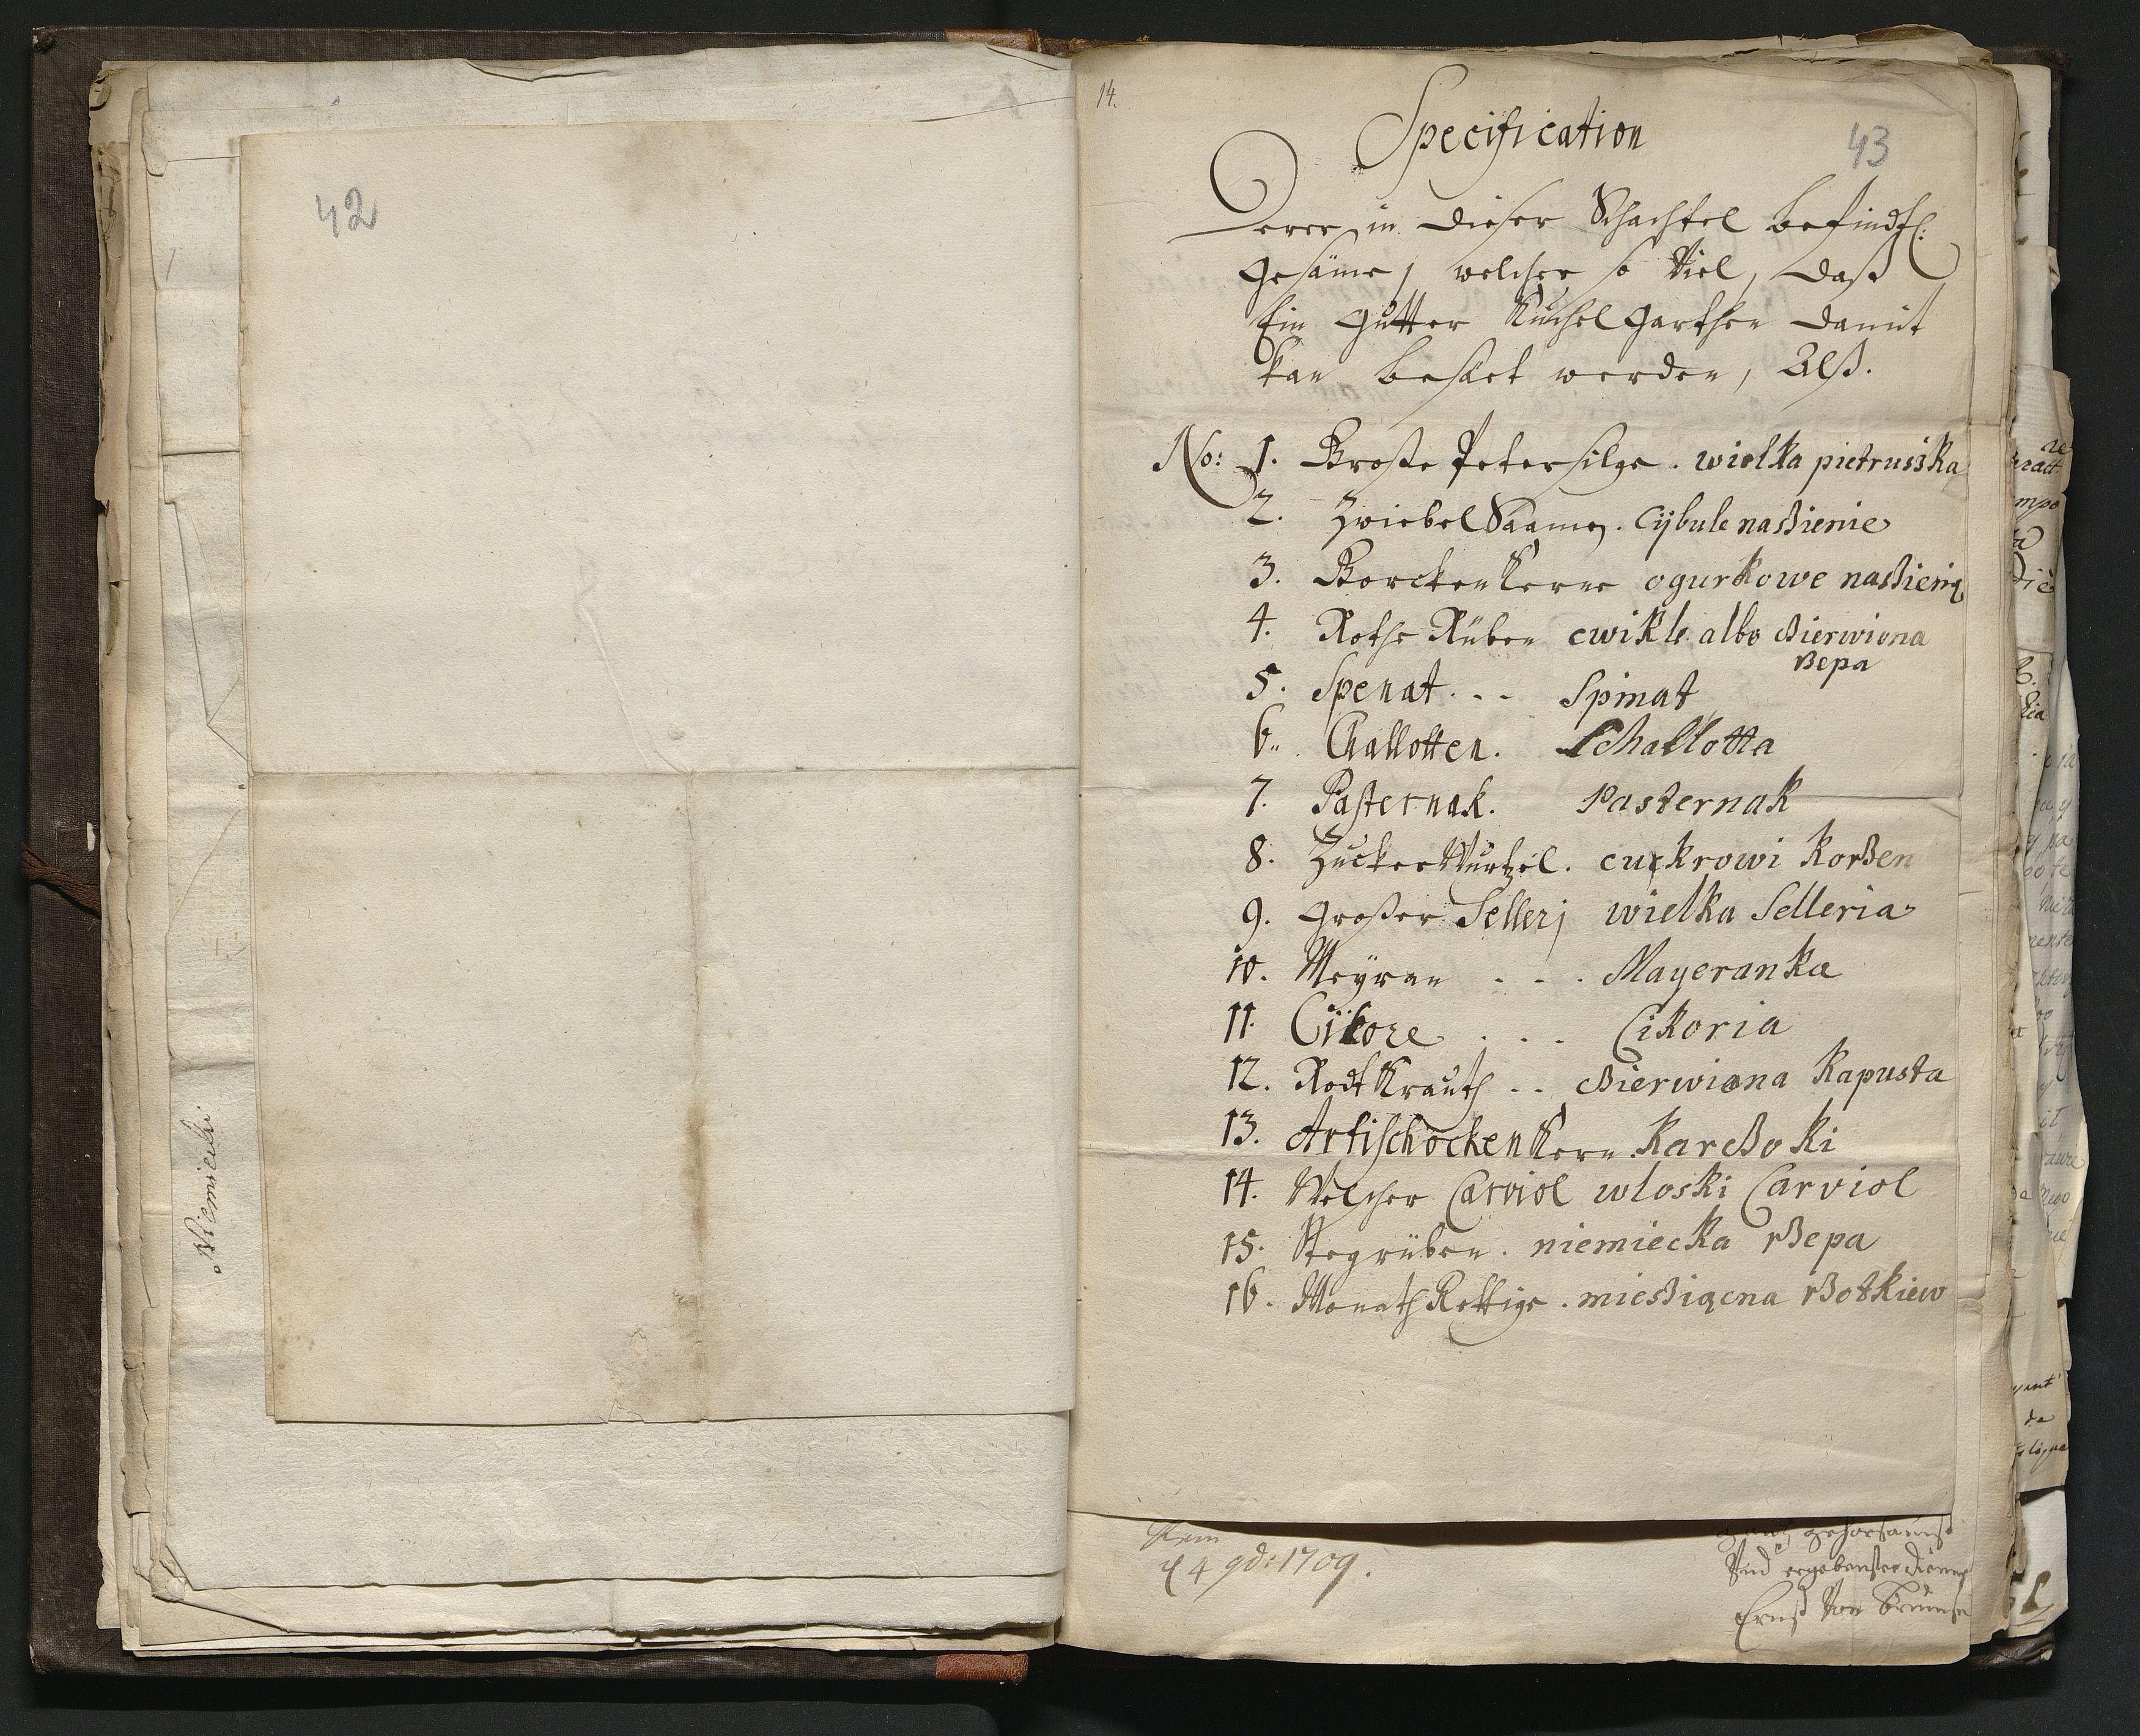 42
Niemiecki
14.
43
Specification
Derer in dieser Schachtel befindtl:
Gesäme, welcher so Viel, daß
Ein gutter KuchelGarthen damit
kan besäet werden, Alß.
No: 1. Große Petersilge. wielka pietrusska
2. ZwiebelSaamen. Cÿbule naßienie
3. Gorckenkerne ogurkowe naßienię
4. Rothe Rüben cwikle albo cßierwiona
rßepa
5. Spenat. - - Spinat
6. Challotten. Schallotta
7. Pasternak. Pasternak
8. ZuckerWurtzel. cuckrowi korßen
9. Großer Sellerj wielka Selleria
10. Meÿran - - - Mayeranka
11. Cikore . - - Cikoria
12. RodtKrauth - - cßierwiona Kapusta
13. ArtischockenKern. Karcßoki
14. Welscher Carviol wloski Carviol
15. Stegrüben. niemiecka rßepa
16. MonathRettige. mießiącna rßotkiew
4 9d: 1709.
gehorsambst
Vnd ergebenster diener
Ernst Von